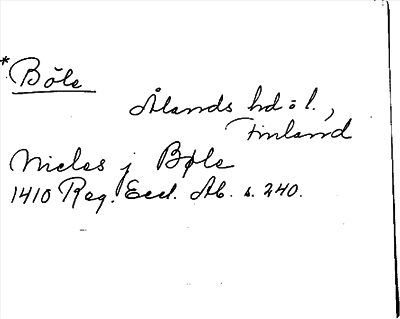 * Böle
Ålands hd o l.,
Finland
Niclas j Bøle
1410 Reg. Eccl. Ab. s. 240.